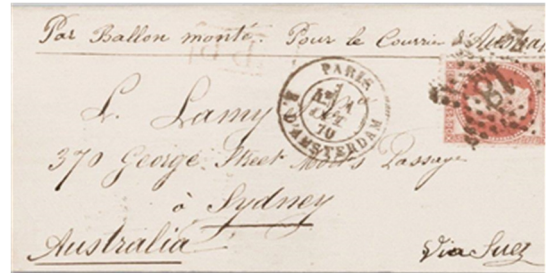 Par Ballon monté. Pour le Courrier d'Austra
PARIS
R. D'AMSTERDAM
OCT.
70
L. Lamy
370 George Street Motts Passage
à Sydney
Australia
Via Suez